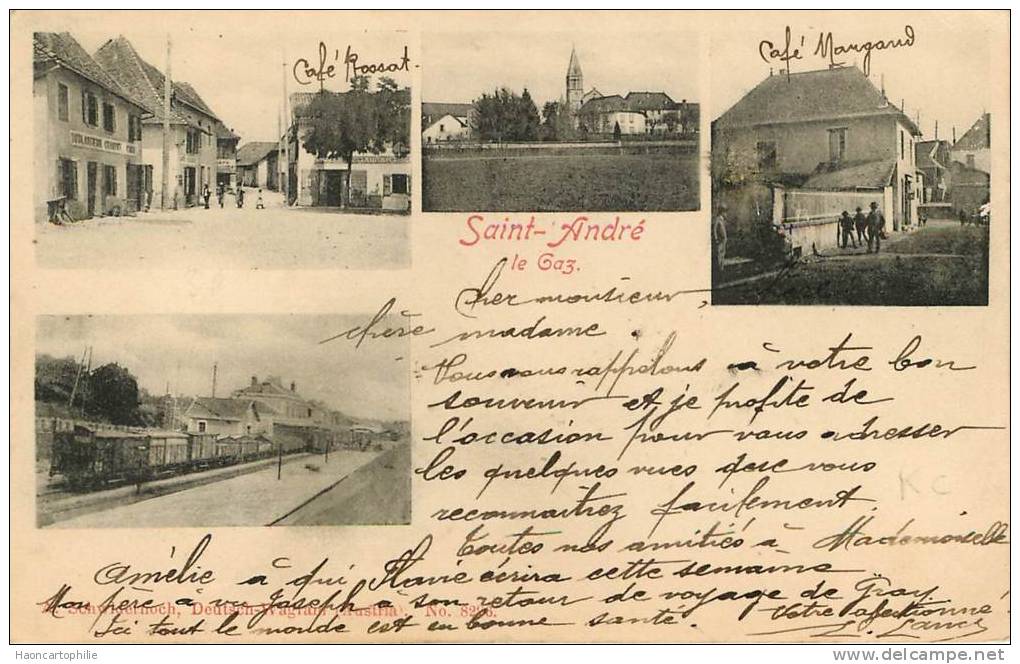 Café Rossat.
Café Margand
Saint-André
le Gaz.
Cher monsieur,
chère madame.
Vous vous rappelons à votre bon
souvenir et je profite de
l'occasion pour vous adresser
les quelques vues que vous
reconnaitrez facilement.
Toutes nos amitiés à Mademoiselle
Amélie à qui Flavie écrira cette semaine
Mon père a vu Joseph à son retour de voyage de Gray
Schwidernoch, Deutsch-Wagram (Austria). No. 8296.
Ici tout le monde est en bonne santé. Votre affectionné
KC
Haoncartophilie
http://www.delcampe.net